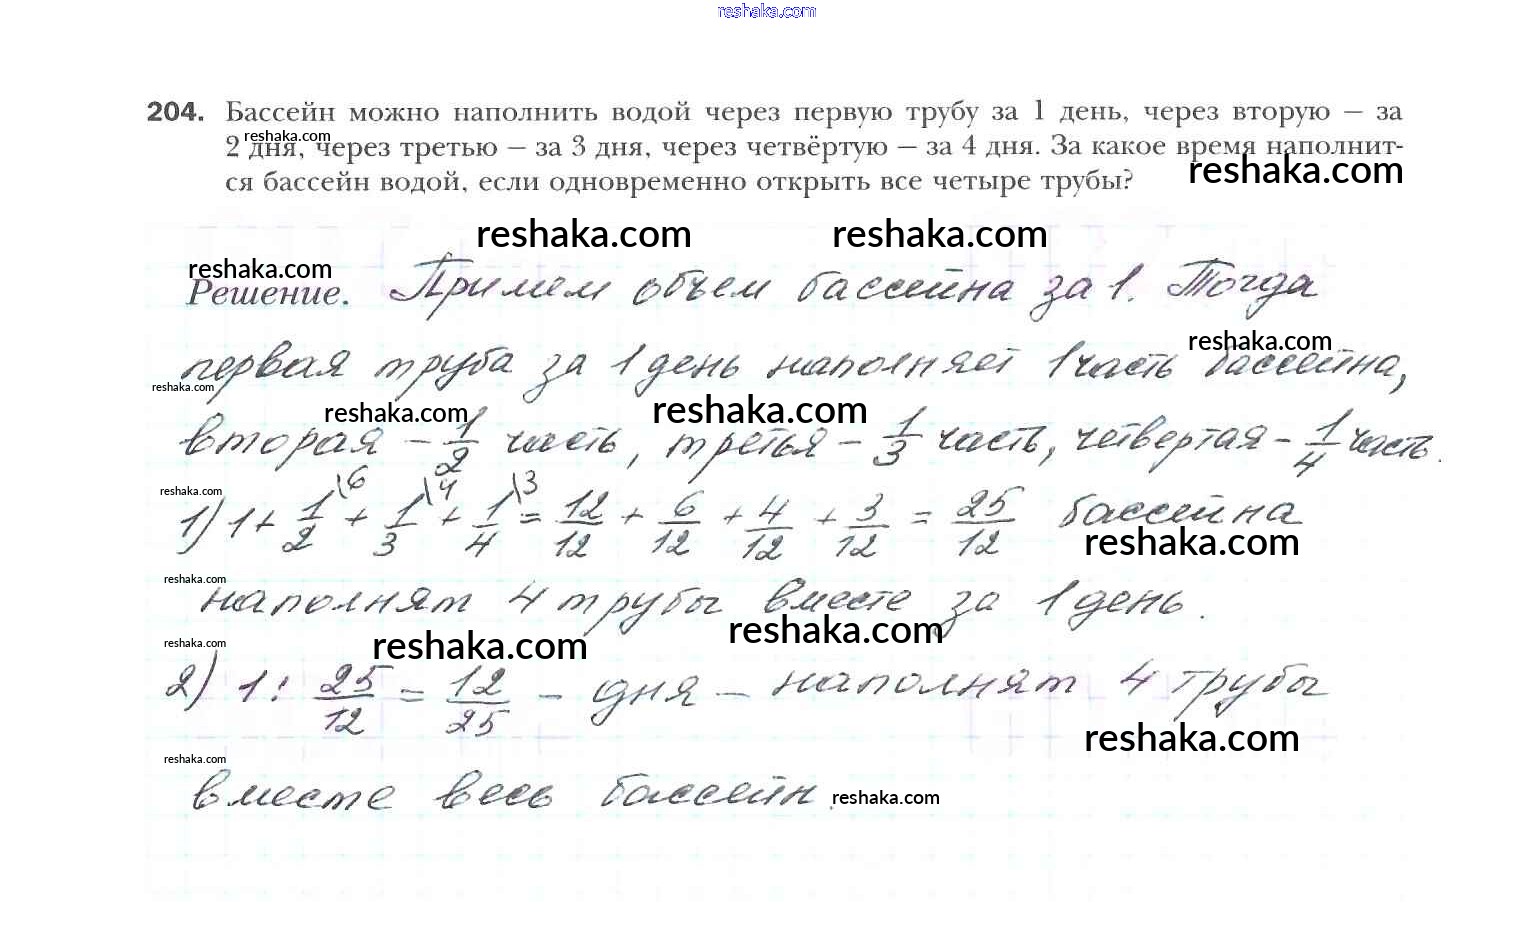 reshaka.com
204. Бассейн можно наполнить водой через первую трубу за 1 день, через вторую – за
reshaka.com
2 дня, через третью – за 3 дня, через четвёртую – за 4 дня. За какое время наполнит-
reshaka.com
ся бассейн водой, если одновременно открыть все четыре трубы?
reshaka.com reshaka.com
reshaka.com
Решение. Примем объем бассейна за 1. Тогда
reshaka.com
первая труба за 1 день наполняет 1 часть бассейна,
reshaka.com
reshaka.com reshaka.com
вторая – 1/2 часть, третья – 1/3 часть, четвертая – 1/4 часть.
reshaka.com
1) 1 + 1/2 \6 + 1/3 \4 + 1/4 \3 = 12/12 + 6/12 + 4/12 + 3/12 = 25/12 бассейна
reshaka.com
reshaka.com
наполнят 4 трубы вместе за 1 день.
reshaka.com
reshaka.com reshaka.com
2) 1 : 25/12 = 12/25 – дня – наполнят 4 трубы
reshaka.com
reshaka.com
вместе весь бассейн.
reshaka.com